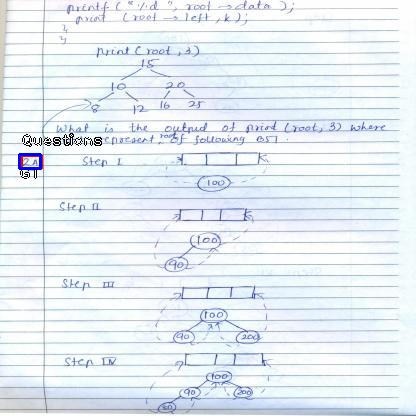 printf ("%d", root → data);
print (root → left, k);
}
}
print (root, 3)
15
10 20
8 12 16 25
Questions
What is the output of print (root, 3) where
represent root of following BST.
2A Step I
61
100
Step II
100
90
Step III
100
90 200
Step IV
100
90 200
80